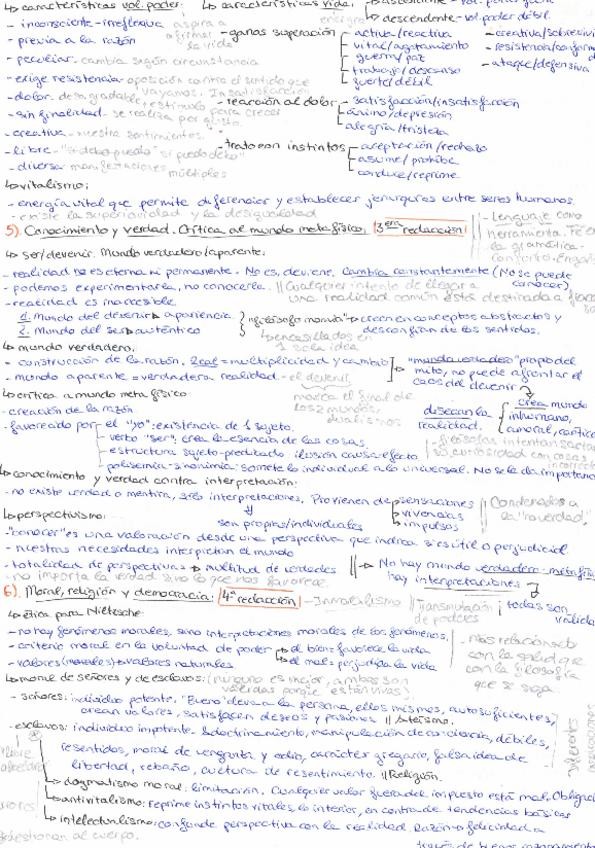 ↳ características vol. poder: ↳ características vida:
- inconsciente - irreflexiva aspira a afirmar la vida
- previa a la razón
- peculiar. cambia según circunstancia
- exige resistencia - oposición contra el sentido que vayamos. Insatisfacción
- dolor. desagradable, estímulo para crecer
- sin finalidad - se realiza por gusto
- creativa - nuestros sentimientos.
- libre - "si debo puedo" si puedo debo"
- diversa manifestaciones múltiples
↳ descendente - vol. poder débil.
- ganas superación activa/reactiva - creativa/
vital/agotamiento - resistencia/
guerra/paz - ataque/defensiva
trabajo/descanso
fuerte/débil
- reacción al dolor - satisfacción/insatisfacción
ánimo/depresión
alegría/tristeza
- trato con instintos aceptación/rechazo
asume/prohíbe
conduce/reprime
↳ vitalismo:
- energía vital que permite diferenciar y establecer jerarquías entre seres humanos.
- existe la superioridad y la desigualdad
5). Conocimiento y verdad. Crítica al mundo metafísico. 3era redacción
- Lenguaje como herramienta. Fe en la gramática.
↳ ser/devenir. Mundo verdadero/aparente.
- realidad no es eterna ni permanente. No es, deviene. Cambia constantemente (No se puede conocer)
- podemos experimentarla, no conocerla. || Cualquier intento de llegar a una realidad común está destinado a
- realidad es inaccesible.
1. Mundo del devenir → apariencia
2. Mundo del ser → auténtico
"filósofo momia" → creen en conceptos abstractos y desconfían de los sentidos.
↳ encasillados en 1 sola idea
↳ mundo verdadero:
- construcción de la razón. Real = multiplicidad y cambio
- mundo aparente = verdadera realidad - el devenir
"mundo verdadero" propio del mito, no puede afrontar el caos del devenir
marca el final de los 2 mundos, dualismos
↳ crítica a mundo metafísico
- creación de la razón
crea mundo inhumano, amoral,
disecan la realidad.
- favorecido por - el "yo": existencia de 1 sujeto.
- verbo "ser": crea la esencia de las cosas.
- estructura sujeto-predicado: ilusión causa-efecto
- polisemia - sinonimia: somete lo individual a lo universal. No se le da importancia
- filósofos intentan saciar su curiosidad con cosas incorrectas
↳ conocimiento y verdad contra interpretación:
- no existe verdad o mentira, sólo interpretaciones. Provienen de → sensaciones
→ vivencias
→ impulsos
son propias/individuales
Condenados a la "no verdad".
↳ perspectivismo:
- "conocer" es una valoración desde una perspectiva que indica si es útil o perjudicial.
- nuestras necesidades interpretan el mundo
- totalidad de perspectivas → multitud de verdades
no importa la verdad sino lo que nos favorece.
No hay mundo verdadero - hay interpretaciones
¡todas son válidas
6). Moral, religión y democracia: 4ª redacción - Inmoralismo || Transmutación de poderes
↳ ética para Nietzsche:
- no hay fenómenos morales, sino interpretaciones morales de los fenómenos.
- criterio moral en la voluntad de poder → el bien: favorece la vida
→ el mal: perjudica la vida
- valores (morales) → valores naturales
- más relacionado con la salud que con la filosofía que se siga.
↳ moral de señores y de esclavos: (ninguno es mejor, ambas son válidas porque están vivas)
- señores: individuo potente. "Bueno" lleva a la persona, ellos mismos, autosuficientes, crean valores, satisfacen deseos y pasiones || Ateísmo.
- esclavos: individuo impotente. Adoctrinamiento, manipulación de conciencia, débiles, resentidos, moral de venganza y odio, carácter gregario, falsa idea de libertad, rebaño, cultura de resentimiento. || Religión.
→ dogmatismo moral: limitación. Cualquier valor fuera del impuesto está mal.
→ antivitalismo: reprime instintos vitales, lo interior, en contra de tendencias básicas
→ intelectualismo: confunde perspectiva con la realidad. Razón → felicidad a
cuestionan al cuerpo.